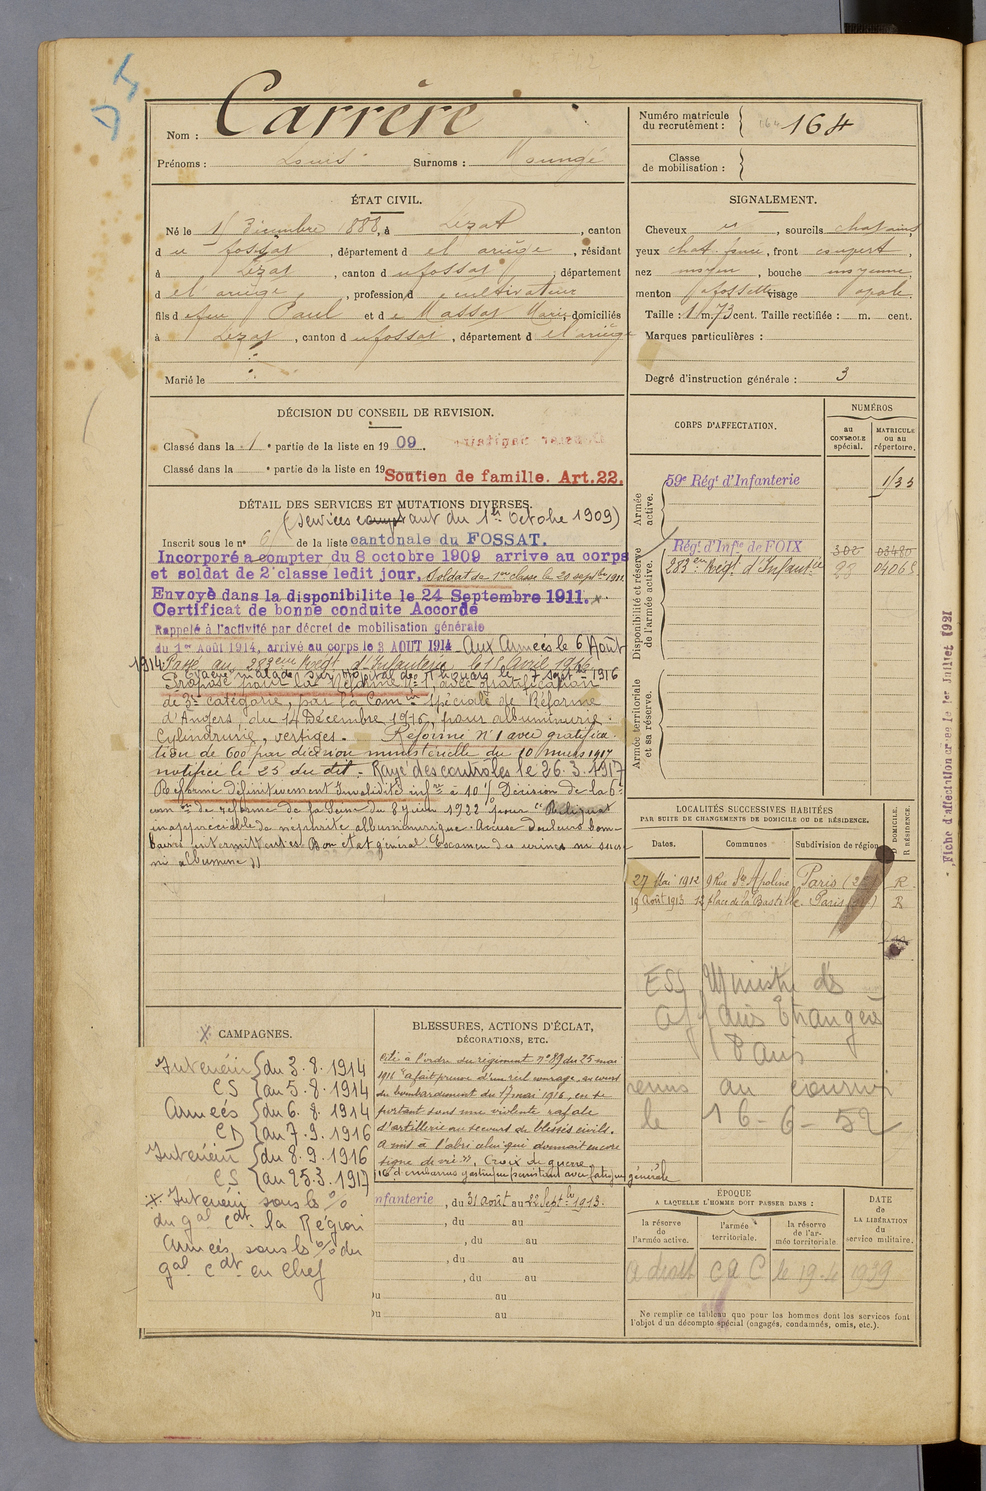 Nom : Carrère
Prénoms : Louis Surnoms :
Numéro matricule du recrutement : 164
Classe de mobilisation :
ÉTAT CIVIL.
Né le 1 Décembre 1888, à Lézat, canton
d u fossat, département d e l'ariège, résidant
à Lézat, canton d u fossat, département
d e l'ariège, profession d e cultivateur
fils d e feu Paul et d e Massat Marie, domiciliés
à Lézat, canton d u fossat, département d e l'ariège
Marié le
SIGNALEMENT.
Cheveux et, sourcils chatains
yeux chat. foncé, front couvert,
nez moyen, bouche moyenne,
menton à fossette visage ovale.
Taille : 1 m. 73 cent. Taille rectifiée : m. cent.
Marques particulières :
Degré d'instruction générale : 3
DÉCISION DU CONSEIL DE REVISION.
Classé dans la 1 e partie de la liste en 1909.
Classé dans la e partie de la liste en 19
Soutien de famille. Art.22.
CORPS D'AFFECTATION.
NUMÉROS
au CONTROLE spécial.
MATRICULE ou au répertoire.
Armée active.
59e Régt d'Infanterie
Disponibilité et réserve de l'armée active.
Régt d'Infie de FOIX 300 03480
283eme Régt d'Infantie 28 04065
Armée territoriale et sa réserve.
DÉTAIL DES SERVICES ET MUTATIONS DIVERSES.
(Services comptant du 1er Octobre 1909)
Inscrit sous le n° 6 de la liste cantonale du FOSSAT.
Incorporé a compter du 8 octobre 1909 arrive au corps
et soldat de 2e classe ledit jour. Soldat de 1ere classe le 20 septbre 1911.
Envoyé dans la disponibilite le 24 Septembre 1911.
Certificat de bonne conduite Accordé
Rappelé à l'activité par décret de mobilisation générale
du 1er Août 1914, arrivé au corps le 3 AOUT 1914 Aux Armées le 6 Août
1914. Passé au 283eme Régt d'Infanterie le 1er Avril 1916
Evacué malade sur hôpital de le 7 septbre 1916
Proposé pour la Réforme n° 1 avec gratification
de 3e catégorie, par la Comon Spéciale de Réforme
d'Angers, du 14 Décembre 1916, pour albuminurie.
Cylindrurie, vertiges. Réformé N° 1 avec gratifica-
tion de 600f par décision ministérielle du 10 mars 1917
notifiée le 25 du dit. Rayé des contrôles le 26.3.1917
Réformé définitivement Invalidité infre à 10% Décision de la 6e
con on de réforme de la Seine du 8 juin 1922 pour "Reliquat
inappréciable de néphrite albuminurique. Accuse douleurs lom-
baires intermittentes Bon état général. Examen des urines ni sucre
ni albumine"
LOCALITÉS SUCCESSIVES HABITÉES
PAR SUITE DE CHANGEMENTS DE DOMICILE OU DE RÉSIDENCE.
Dates. Communes Subdivision de région D DOMICILE. R RÉSIDENCE.
27 Mai 1912 9 Rue Ste Apoline Paris R
19 Août 1913 12 place de la Bastille Paris R
ESS Ministre des
aff aires Etrangères
Paris
revus au courrier
le 16-6-52
CAMPAGNES.
Intérieur { du 3.8.1914
CS { au 5.8.1914
Armées { du 6.8.1914
CD { au 7.9.1916
Intérieur { du 8.9.1916
CS { au 25.3.1917
Intérieur sous le %
du gal Cdt la Région
Armées, sous les % du
gal Cdt en Chef
BLESSURES, ACTIONS D'ÉCLAT,
DÉCORATIONS, ETC.
Cité à l'ordre du régiment n° 89 du 25 mai
1916 "a fait preuve d'un réel courage au cours
du bombardement du 17 mai 1916, en se
portant sous une violente rafale
d'artillerie au secours de blessés civils.
A mis à l'abri celui qui donnait encore
signe de vie". Croix de guerre.
nfanterie, du 31 août au 22 Septbre 1913.
, du au
, du au
, du au
, du au
Du au
Du au
ÉPOQUE
A LAQUELLE L'HOMME DOIT PASSER DANS :
la réserve de l'armée active.
l'armée territoriale.
la réserve de l'armée territoriale.
DATE de LA LIBÉRATION du service militaire.
a droit C a C le 19.4 1939
Ne remplir ce tableau que pour les hommes dont les services font
l'objet d'un décompte spécial (engagés, condamnés, omis, etc.).
Fiche d'affectation créée le 1er Juillet 1921